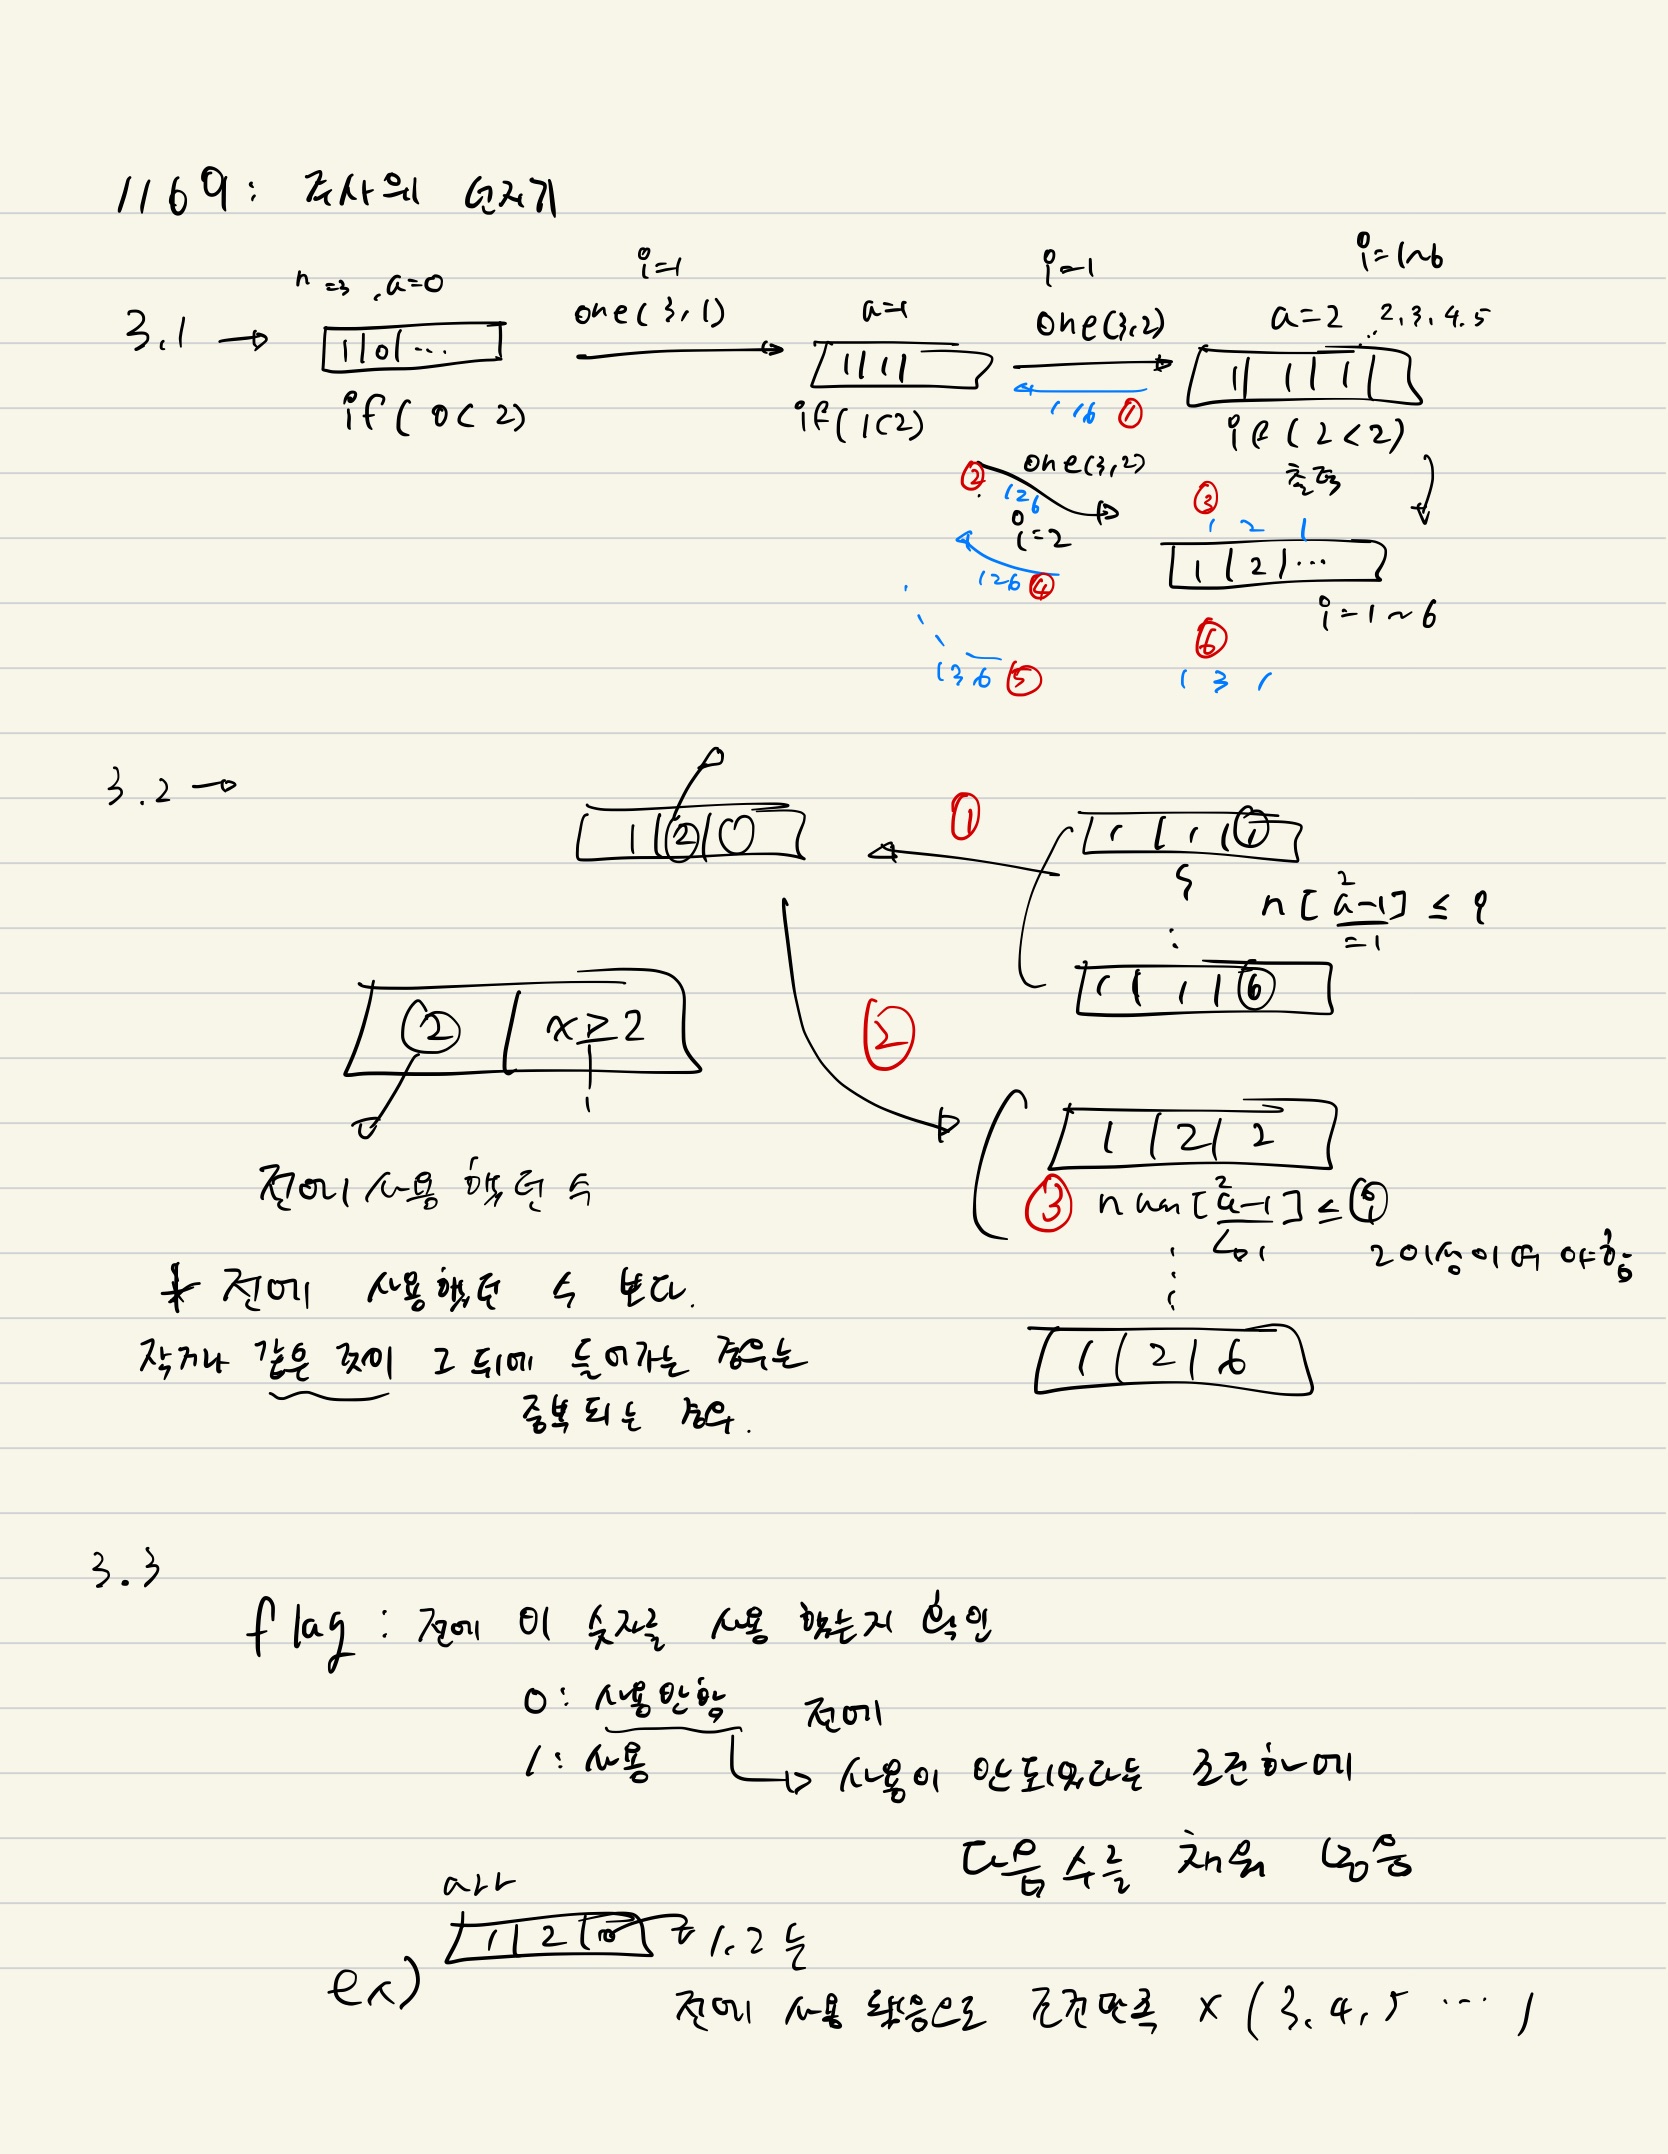 1169: 주사위 던지기
3.1 →
n=3, a=0
1|0|...
if( 0 < 2)
i=1
one(3,1)
a=1
1|1|
if(1<2)
i=1
one(3,2)
116 ①
i=1~6
a=2 2,3,4,5
1|1|1|
if(2<2)
출력
② one(3,2)
126
i=2
126 ④
③
1 2 1
1|2|...
i=1~6
136 ⑤
⑥
1 3 1
3.2 →
1|2|0
①
1|1|1
n[a-1] ≤ i
2
=1
1|1|6
2 | x≥2
②
전에 사용했던 수
1|2|2
③ num[a-1] ≤ i
2
2이상이여야함
1|2|6
* 전에 사용했던 수 보다.
작거나 같은 것이 그 뒤에 들어가는 경우는
중복되는 경우.
3.3
flag : 전에 이 숫자를 사용 했는지 확인
0: 사용안함 전에
1: 사용 → 사용이 안되있다는 조건하에
다음 수를 채워 넣음
arr
ex) 1|2|0 → 1,2 는
전에 사용 했음으로 조건만족 x (3,4,5 ... )